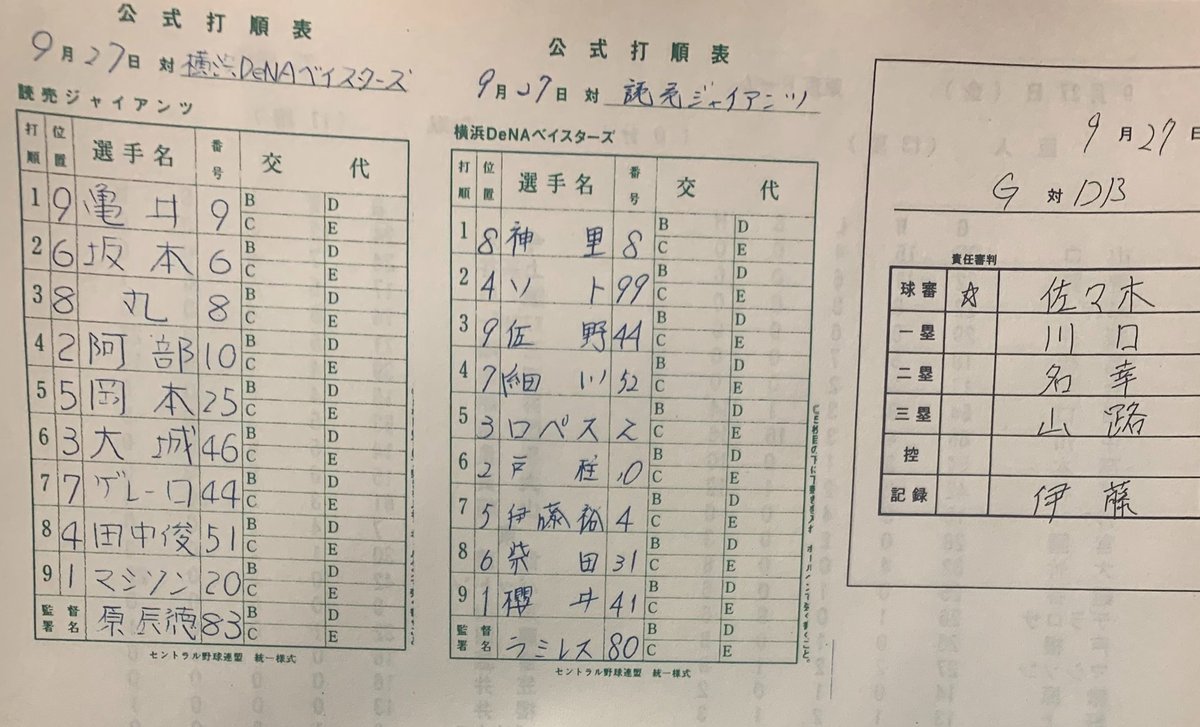 公式打順表
9月27日 対 横浜DeNAベイスターズ
読売ジャイアンツ
打順 位置 選手名 番号 交代
1 9 亀井 9 B D C E
2 6 坂本 6 B D C E
3 8 丸 8 B D C E
4 2 阿部 10 B D C E
5 5 岡本 25 B D C E
6 3 大城 46 B D C E
7 7 ゲレーロ 44 B D C E
8 4 田中俊 51 B D C E
9 1 マシソン 20 B D C E
監督署名 原辰徳 83 B D C E
セントラル野球連盟 統一様式
公式打順表
9月27日 対 読売ジャイアンツ
横浜DeNAベイスターズ
打順 位置 選手名 番号 交代
1 8 神里 8 B D C E
2 4 ソト 99 B D C E
3 9 佐野 44 B D C E
4 7 細川 52 B D C E
5 3 ロペス 2 B D C E
6 2 戸柱 10 B D C E
7 5 伊藤裕 4 B D C E
8 6 柴田 31 B D C E
9 1 櫻井 41 B D C E
監督署名 ラミレス 80 B D C E
セントラル野球連盟 統一様式
9月27日
G 対 DB
責任審判
球審 ☆ 佐々木
一塁 川口
二塁 名幸
三塁 山路
控
記録 伊藤